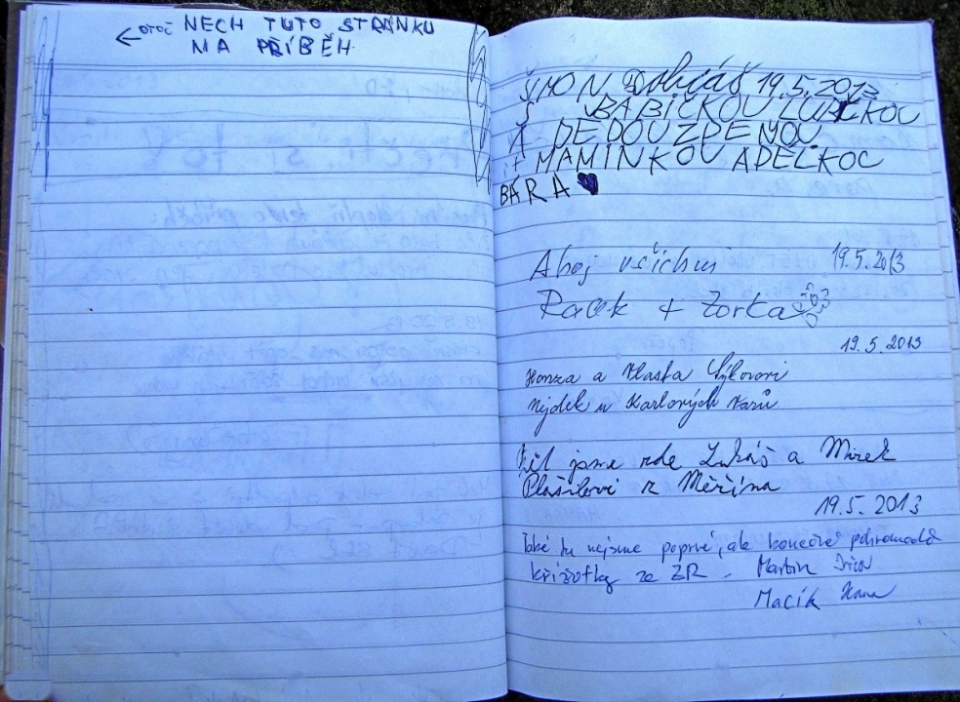 ← OTOČ NECH TUTO STRÁNKU
NA PŘÍBĚH
ŠIMON 19.5.2013
S BABIČKOU LUBČKOU
A DĚDOU ZDEŇOU
+ MAMINKOU ADÉLKOU
BÁRA
Ahoj všichni 19.5.2013
Racek + Zorka
19.5.2013
Honza a Vlasta Sýkorovi
Nejdek u Karlových Varů
Byl jsme zde Lukáš a Mirek
Plašilovi z Měřína
19.5.2013
Také tu nejsme poprvé, ale konečně pohromadě
křižotky ze ZR. Martin
Macík Hana